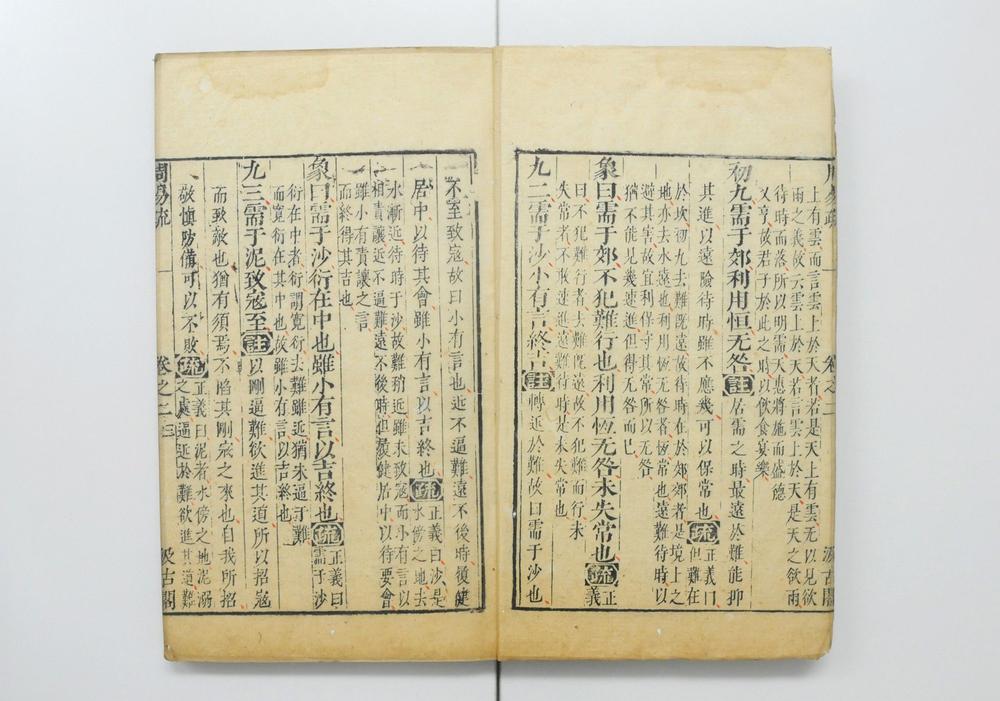 周易疏 卷之二 汲古閣
上有雲而言雲上於天者若是天上有雲无以見欲
雨之義故云雲上於天若言雲上於天是天之欲雨
待時而落所以明需天惠將施而盛德
又亨故君子於此之時以飲食宴樂
初九需于郊利用恒无咎註居需之時最遠於難能抑
其進以遠險待時雖不應幾可以保常也疏正義曰
但難在
於坎初九去難既遠故待時在於郊郊者是境上之
地亦去水遠也利用恆无咎者恆常也遠難待時以
避其害故宜利保守其常所以无咎
猶不能見幾速進但得无咎而已
象曰需于郊不犯難行也利用恆无咎未失常也疏正
義
曰不犯難行者去難既遠故不犯難而行未
失常者不敢速進遠難待時是未失常也
九二需于沙小有言終吉註轉近於難故曰需于沙也
不至致寇故曰小有言也近不逼難遠不後時履健
居中以待其會雖小有言以吉終也疏正義曰沙是
水傍之地去
水漸近待時于沙故難稍近雖未致寇而小有言以
相責讓近不逼難遠不後時但履健居中以待要會
雖小有責讓之言
而終得其吉也
象曰需于沙衍在中也雖小有言以吉終也疏正義曰
需于沙
衍在中者衍謂寬衍去難雖近猶未逼于難
而寬衍在其中也故雖小有言以吉終也
九三需于泥致寇至註以剛逼難欲進其道所以招寇
而致敵也猶有須焉不陷其剛寇之來也自我所招
敬慎防備可以不敗疏正義曰泥者水傍之地泥溺
之處逼近於難欲進其道難
周易疏 卷之二 三 汲古閣